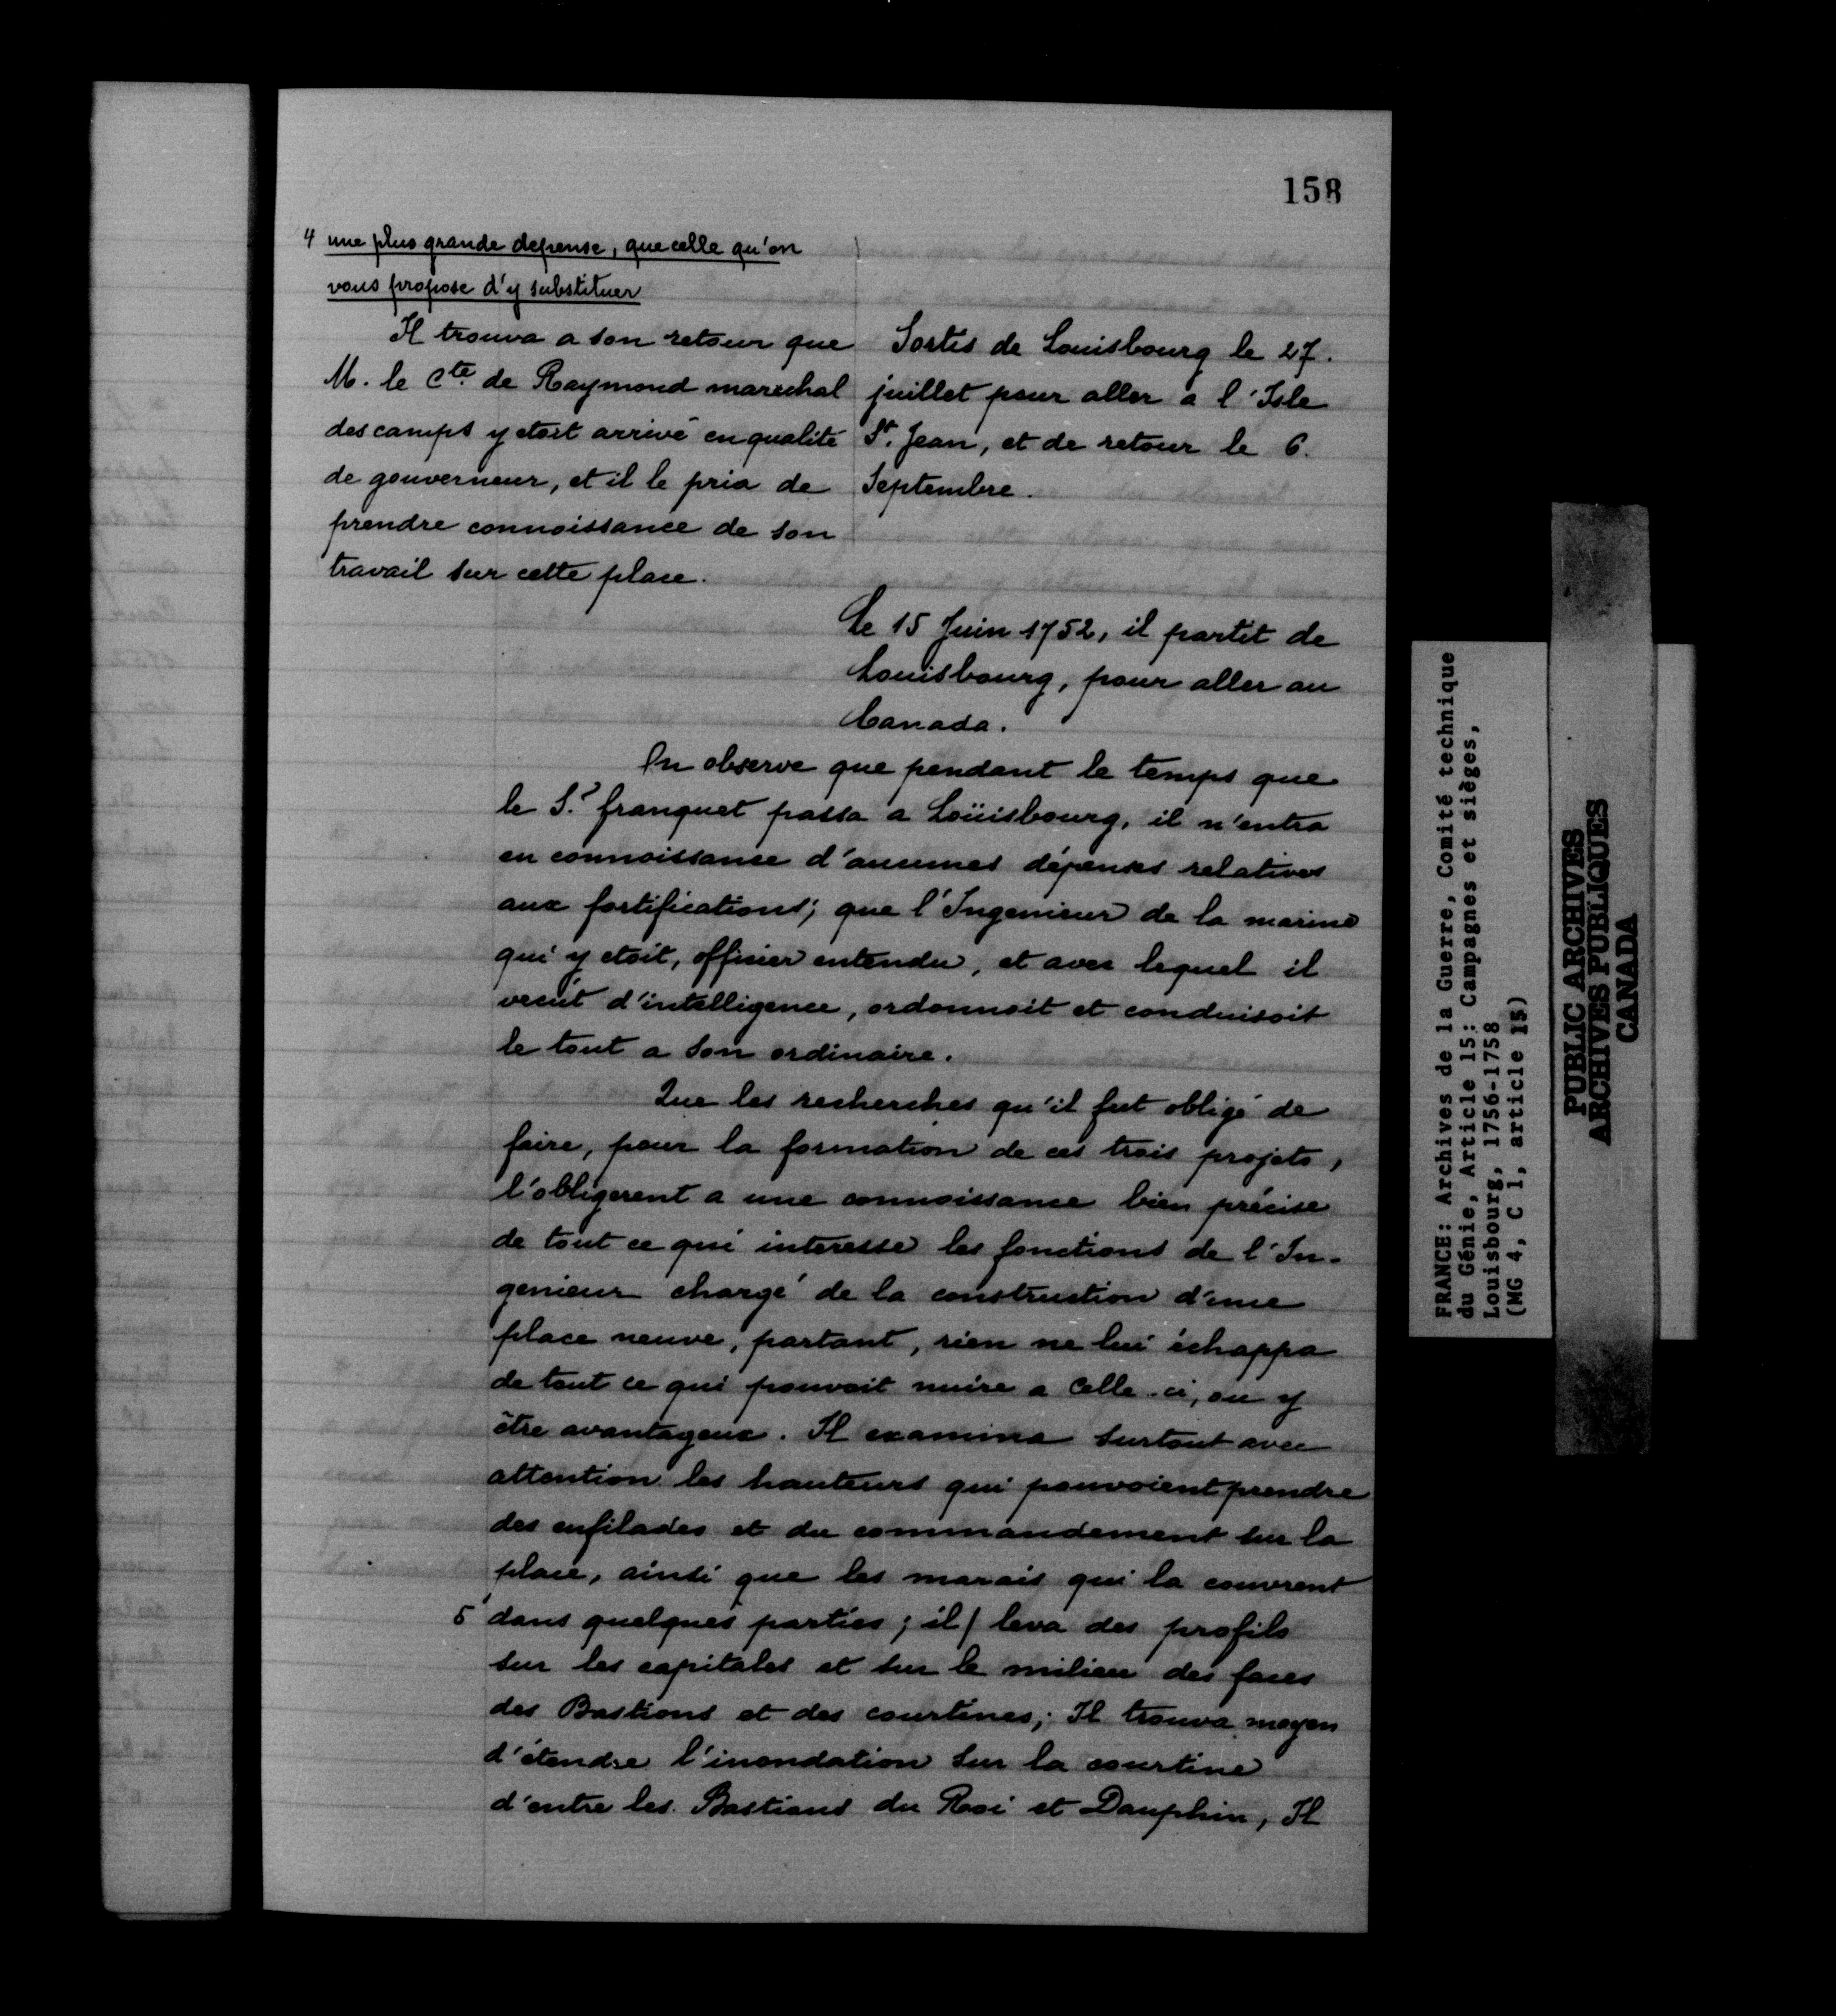 158
4 une plus grande depense, que celle qu'on
vous propose d'y substituer
Il trouva a son retour que
M. le Cte. de Raymond marechal
des camps y etoit arrivé en qualité
de gouverneur, et il le pria de
prendre connoissance de son
travail sur cette place.
Sortis de Louisbourg le 27.
juillet pour aller a l'Isle
St. Jean, et de retour le 6.
Septembre.
Le 15 Juin 1752, il partit de
Louisbourg, pour aller au
Canada.
On observe que pendant le temps que
le S.r franquet passa a Loüisbourg, il n'entra
en connoissance d'aucunes dépenses relatives
aux fortifications; que l'Ingenieur de la marine
qui y etoit, officier entendu, et avec lequel il
vecut d'intelligence, ordonnoit et conduisoit
le tout a son ordinaire.
Que les recherches qu'il fut obligé de
faire, pour la formation de ces trois projets,
l'obligerent a une connoissance bien précise
de tout ce qui interesse les fonctions de l'In-
genieur chargé de la construction d'une
place neuve, partant, rien ne lui échappa
de tout ce qui pouvoit nuire a celle-ci, ou y
être avantageux. Il examina surtout avec
attention les hauteurs qui pouvoient prendre
des enfilades et du commandement sur la
place, ainsi que les marais qui la couvrent
5 dans quelques parties; il / leva des profils
sur les capitales et sur le milieu des faces
des Bastions et des courtines; Il trouva moyen
d'étendre l'inondation sur la courtine
d'entre les Bastions du Roi et Dauphin, Il
FRANCE: Archives de la Guerre, Comité technique
du Génie, Article 15: Campagnes et sièges,
Louisbourg, 1756-1758
(MG 4, C 1, article 15)
PUBLIC ARCHIVES
ARCHIVES PUBLIQUES
CANADA